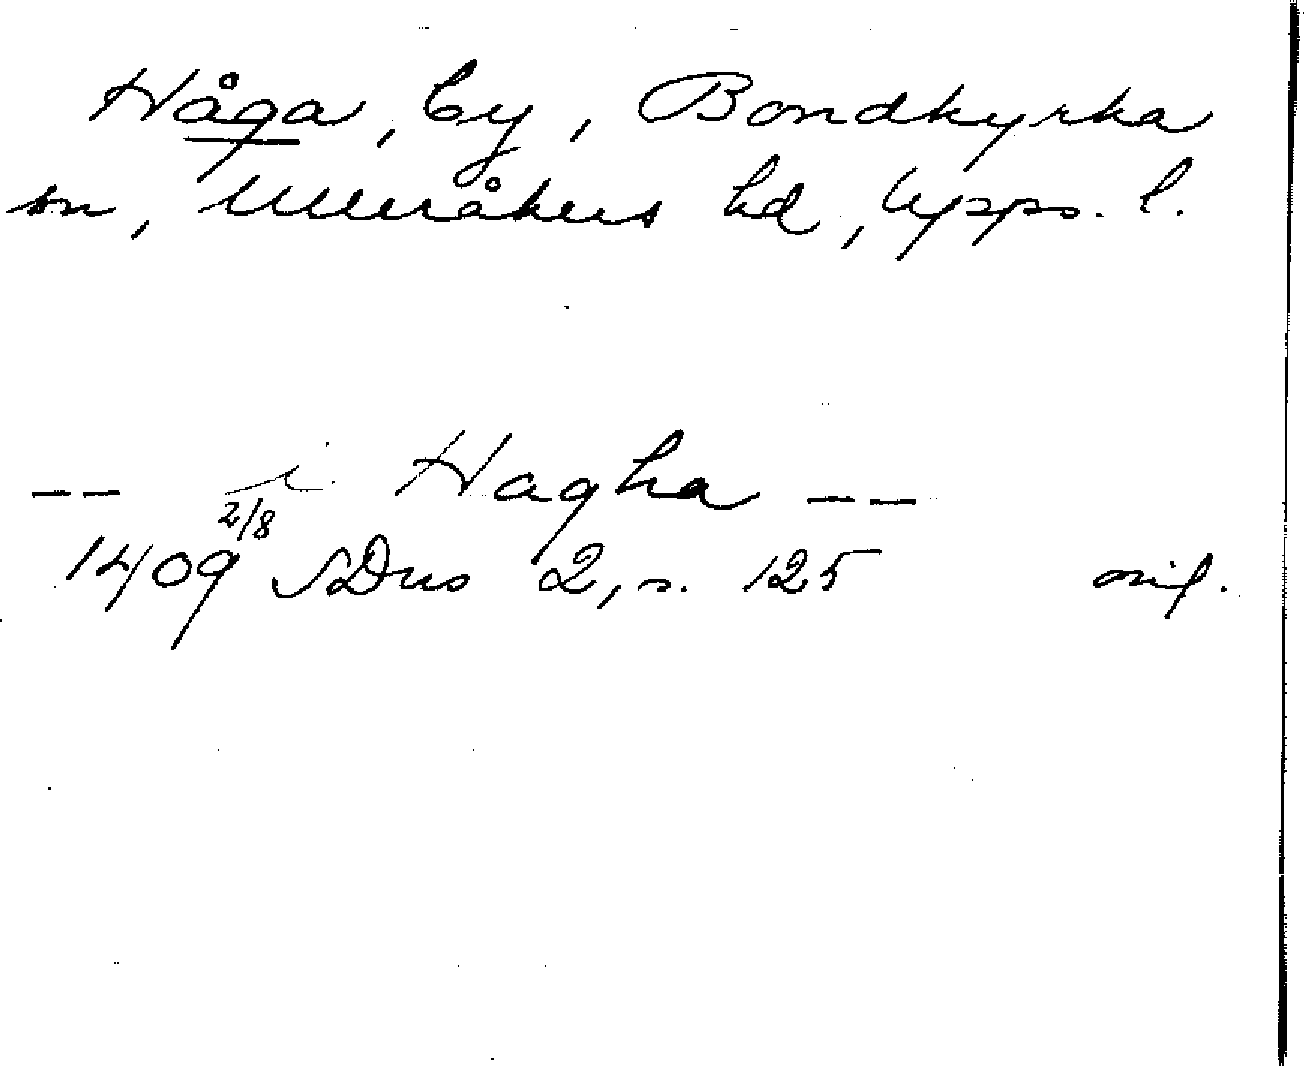 Håga, by, Bondkyrka
sn, Ulleråkers hd, Upps. l.
-- i Hagha --
1409 2/8 SDns 2, s. 125 orig.